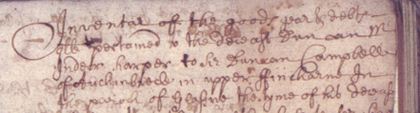 Inventar of the goods gear & debts
qlk pertained to the deceast Duncan M
Inder harper to Sr Duncan Campbell
of Auchinbreck in upper fincharn In
the paroch of Glasrie the tyme of his deceas